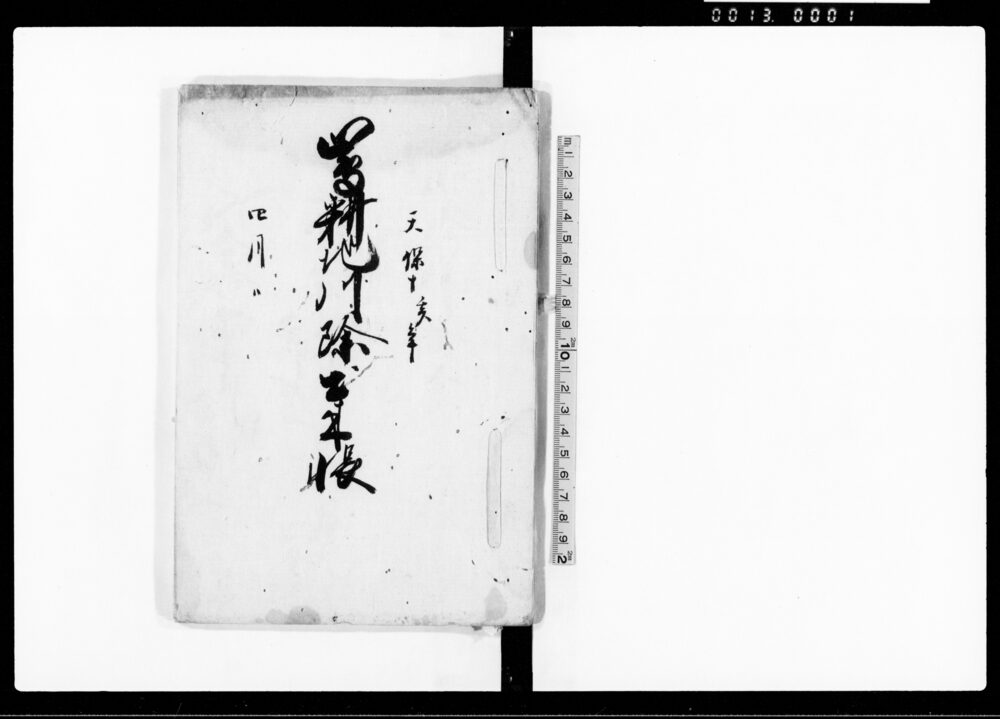 0013 0001
天保十亥年
耕地川除帳
四月日
m 1 2 3 4 5 6 7 8 9 10 1 2 3 4 5 6 7 8 9 2